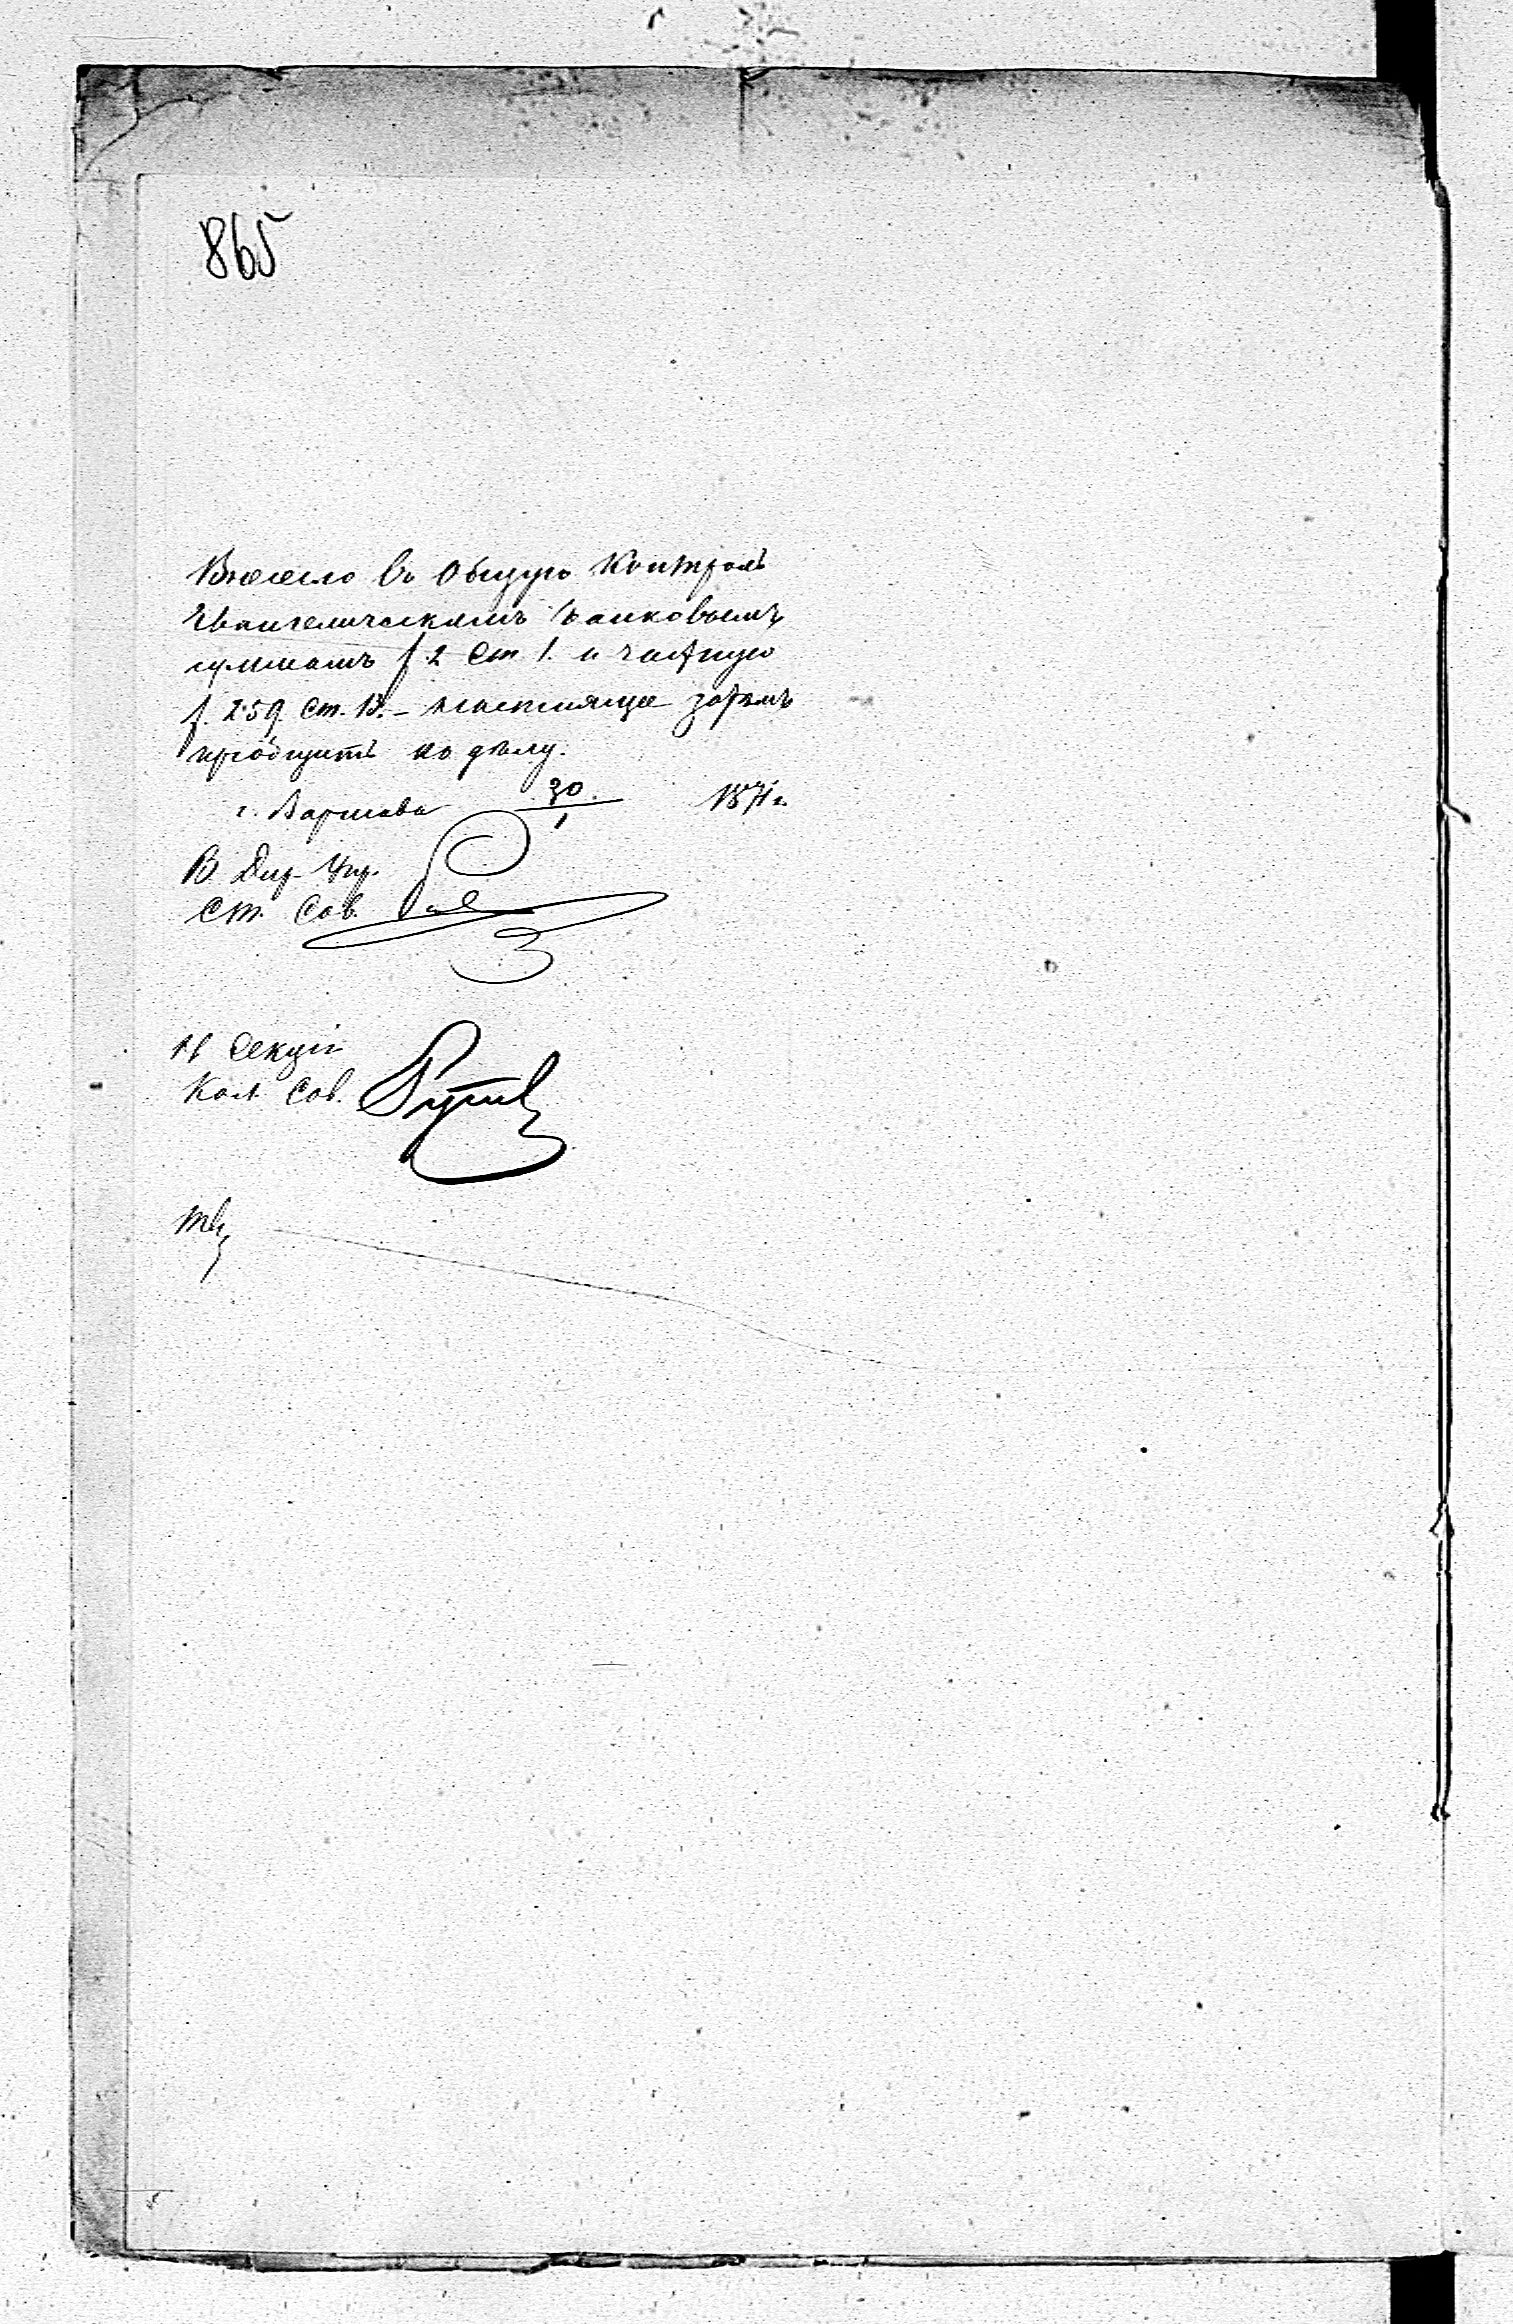 865
Внесено въ Общую Контроль
Евангелическимъ банковымъ
суммамъ f. 2 ст. 1. и частную
f. 259 ст. 18. – настоящее затѣмъ
пріобщить къ дѣлу.
г. Варшава 30/1 1871 г.
В. Дир. Упр.
Ст. Сов.
Н. Секціи
Кол. Сов.